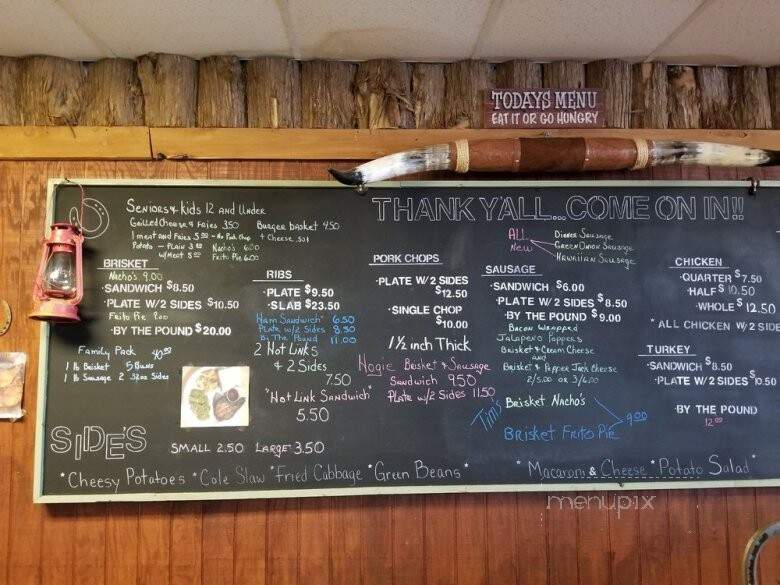 TODAYS MENU
EAT IT OR GO HUNGRY
THANK Y'ALL...COME ON IN!!
SENIORS & KIDS 12 AND UNDER
Grilled Cheese & Fries 3.50
Burger basket 4.50
1 meat and Fries 5.00 - No Pork Chop
+ Cheese .50
Potato - PLAIN 3.00
Nacho's 6.00
w/Meat 5.00
Frito Pie 6.00
BRISKET
Nacho's 9.00
·SANDWICH $8.50
·PLATE W/2 SIDES $10.50
Frito Pie 9.00
·BY THE POUND $20.00
Family Pack 40.00
1 lb Brisket 5 Buns
1 lb Sausage 2 32oz Sides
RIBS
·PLATE $9.50
·SLAB $23.50
Ham Sandwich 6.50
Plate w/2 Sides 8.50
By The Pound 11.00
2 Hot Links
& 2 Sides
7.50
"Hot Link Sandwich"
5.50
PORK CHOPS
·PLATE W/2 SIDES
$12.50
·SINGLE CHOP
$10.00
1½ inch Thick
Hogie Brisket & Sausage
Sandwich 9.50
Plate w/2 Sides 11.50
ALL New
Dinner Sausage
Green Onion Sausage
Hawaiian Sausage
SAUSAGE
·SANDWICH $6.00
·PLATE W/2 SIDES $8.50
·BY THE POUND $9.00
Bacon Wrapped
Jalapeno Poppers
Brisket & Cream Cheese
and
Brisket & Pepper Jack Cheese
2/5.00 or 3/6.00
Tim's
Brisket Nacho's
9.00
Brisket Frito Pie
CHICKEN
·QUARTER $7.50
·HALF $10.50
·WHOLE $12.50
*ALL CHICKEN W/2 SIDE
TURKEY
·SANDWICH $8.50
·PLATE W/2 SIDES $10.50
·BY THE POUND
12.00
SIDE'S
SMALL 2.50 LARGE 3.50
*Cheesy Potatoes *Cole Slaw *Fried Cabbage *Green Beans *
*Macaroni & Cheese *Potato Salad
menupix